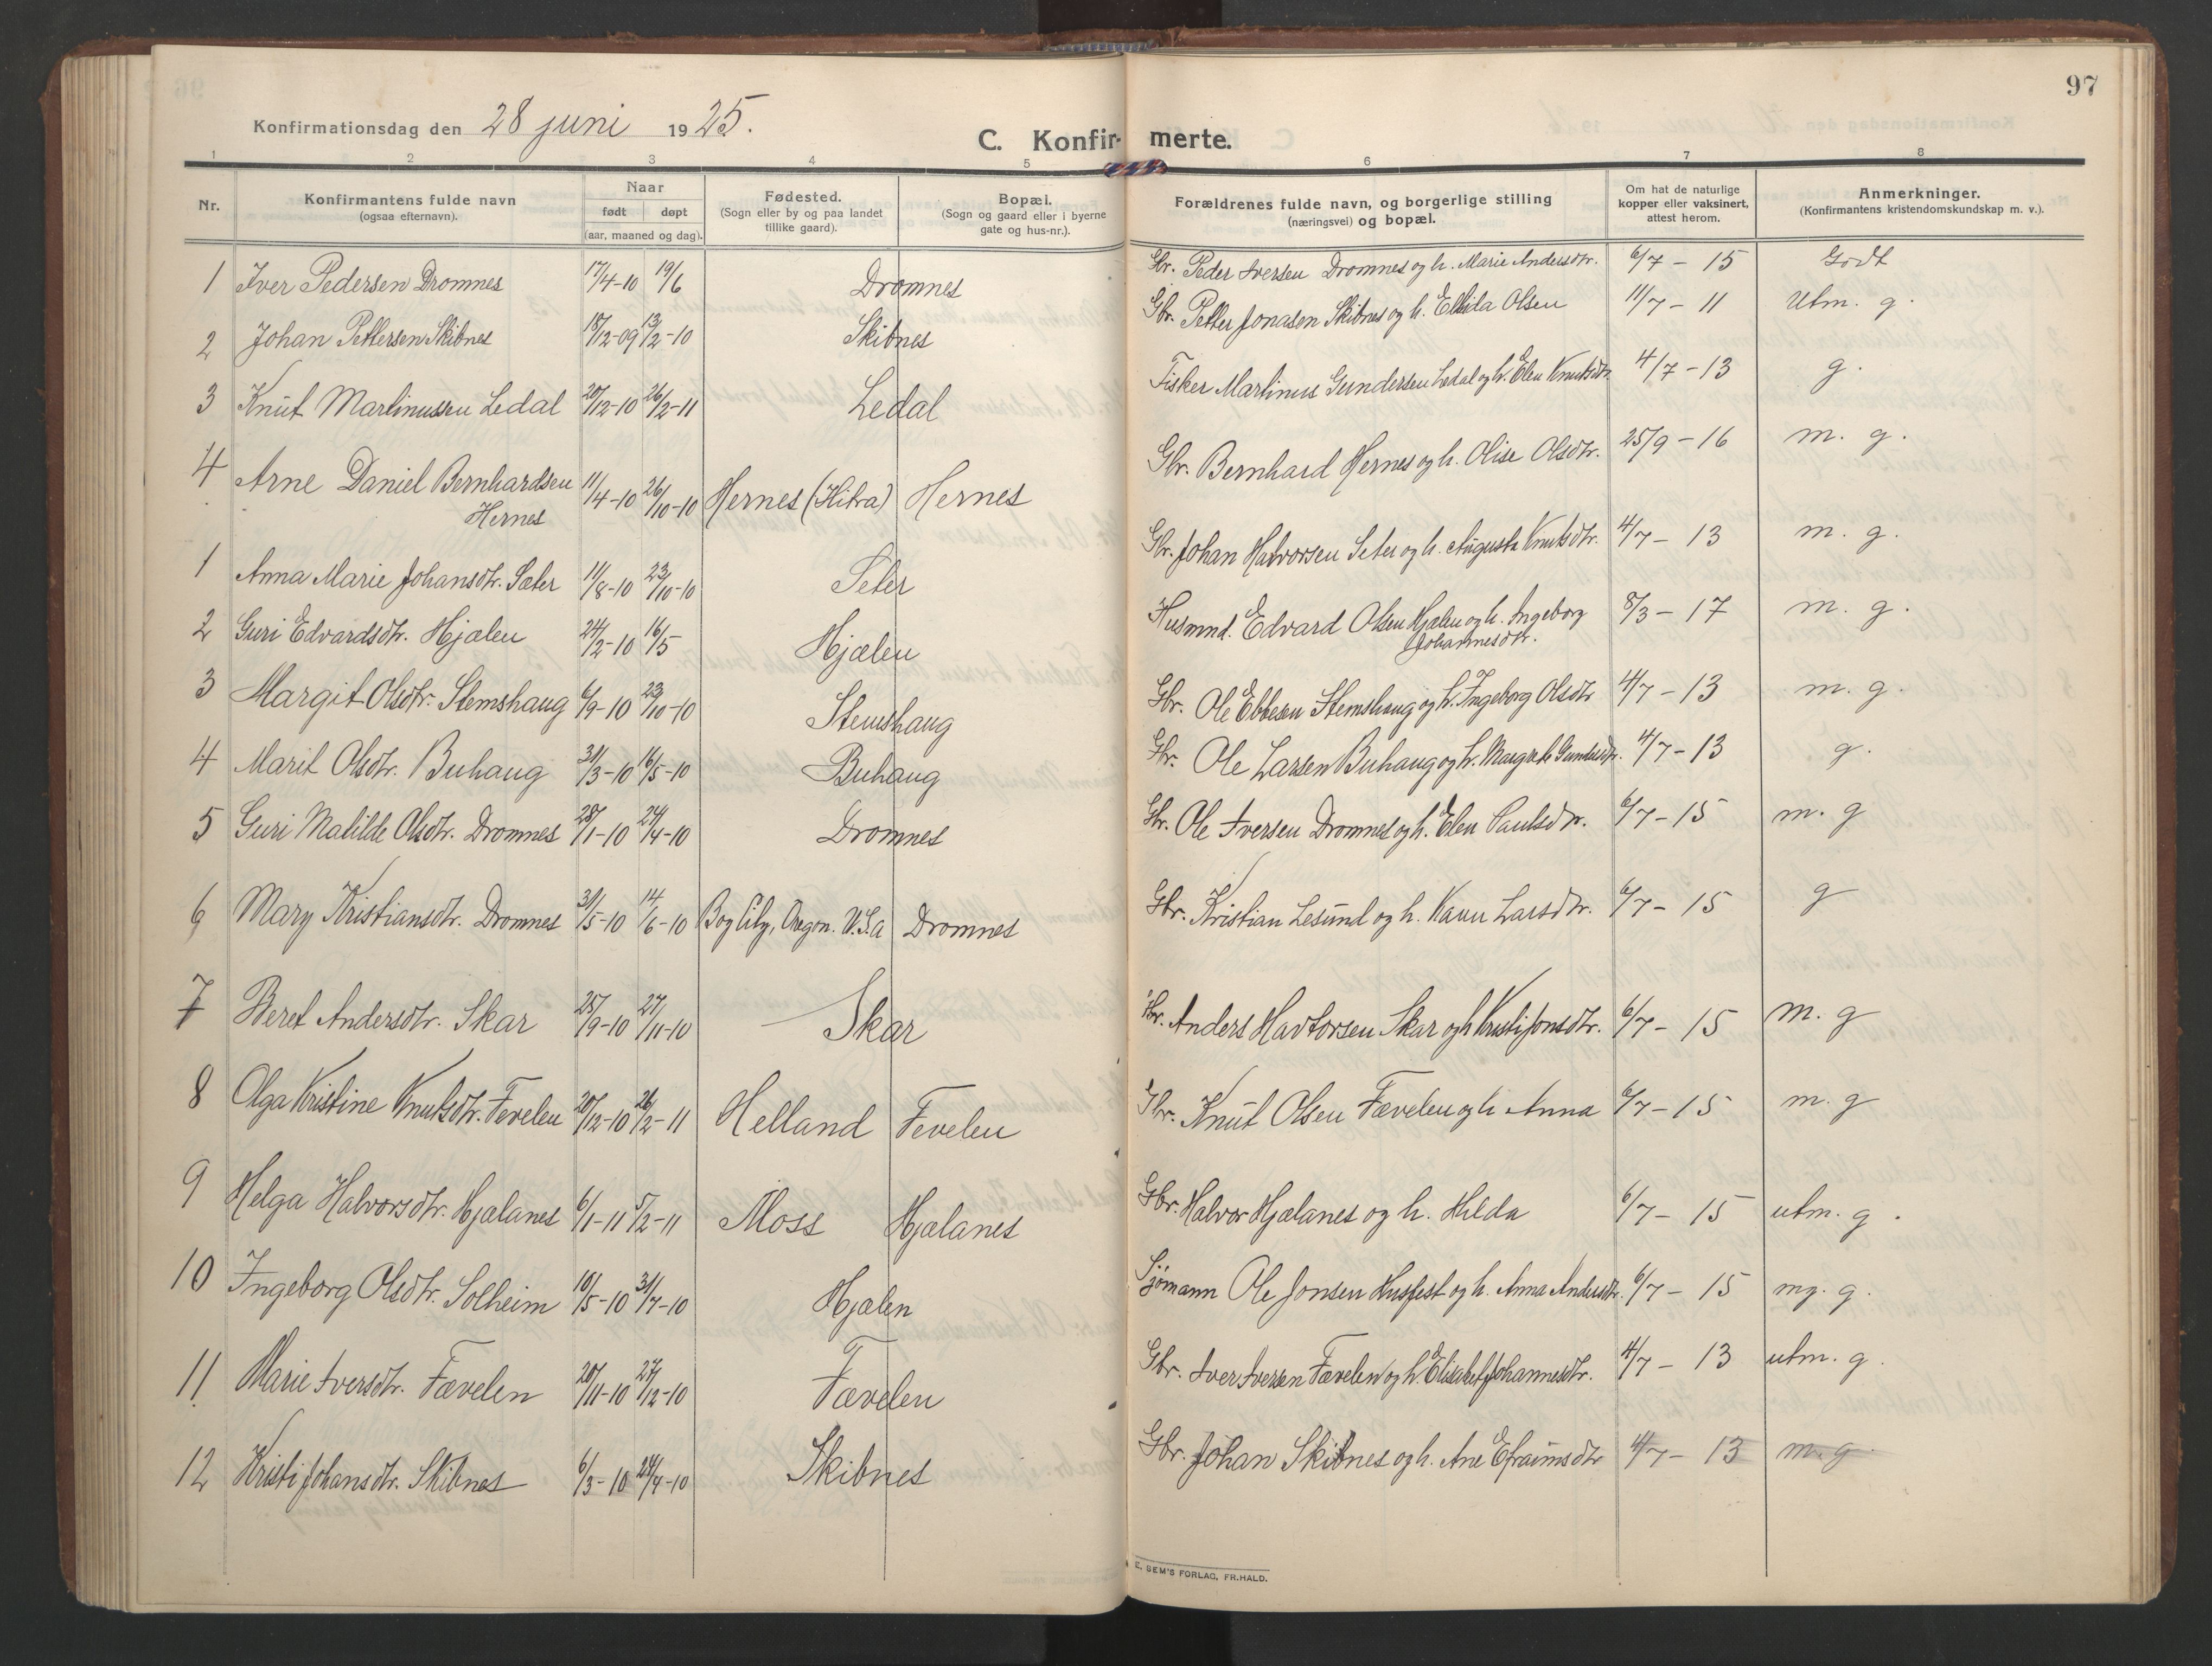 97
Konfirmationsdag den 28 juni 1925.
C. Konfirmerte.
1 2 3 4 5 6 7 8
Nr. Konfirmantens fulde navn (ogsaa efternavn). Naar født døpt (aar, maaned og dag). Fødested. (Sogn eller by og paa landet tillike gaard). Bopæl. (Sogn og gaard eller i byerne gate og hus-nr.). Forældrenes fulde navn, og borgerlige stilling (næringsvei) og bopæl. Om hat de naturlige kopper eller vaksinert, attest herom. Anmerkninger. (Konfirmantens kristendomskundskap m. v.).
1 Iver Pedersen Dromnes 17/4-10 19/6 Dromnes Gbr. Peder Iversen Dromnes og h. Marie Andersdtr. 6/7 - 15 Godt
2 Johan Pettersen Skibnes 18/12-09 13/2-10 Skibnes Gbr. Petter Jonasen Skibnes og h. Ellida Olsen 11/7 - 11 Utm. g.
3 Knut Martinussen Ledal 20/12-10 26/2-11 Ledal Fisker Martinus Gundersen Ledal og h. Elen Knutsdtr. 4/7 - 13 g.
4 Arne Daniel Bernhardsen Hernes 11/4-10 26/10-10 Hernes (Hitra) Hernes Gbr. Bernhard Hernes og h. Olise Olsdtr. 25/9 - 16 m. g.
1 Anna Marie Johansdtr. Sæter 11/8-10 23/10-10 Seter Gbr. Johan Halvorsen Seter og h. Augusta Knutsdtr. 4/7 - 13 m. g.
2 Guri Edvardsdtr. Hjælen 24/2-10 16/5 Hjælen Husmnd. Edvard Olsen Hjælen og h. Ingeborg Johannesdtr. 8/3 - 17 m. g.
3 Margit Olsdtr. Stemshaug 6/9-10 23/10-10 Stemshaug Gbr. Ole Ebbesen Stemshaug og h. Ingeborg Olsdtr 4/7 - 13 m. g.
4 Marit Olsdtr. Buhaug 31/3-10 16/5-10 Buhaug Gbr. Ole Larsen Buhaug og h. Margrete Gundersdtr. 4/7 - 13 g.
5 Guri Matilde Olsdtr. Dromnes 28/1-10 24/4-10 Dromnes Gbr. Ole Iversen Dromnes og h. Elen Paulsdtr. 6/7 - 15 m. g
6 Mary Kristiansdtr. Dromnes 31/5-10 14/6-10 Boy City, Oregon. U.S.a Dromnes Gbr. Kristian Lesund og h. Karen Larsdtr. 6/7 - 15 g
7 Beret Andersdtr. Skar 25/9-10 27/11-10 Skar Gbr. Anders Havtorsen Skar og h Kristi Jonsdtr. 6/7 - 15 m. g
8 Olga Kristine Knutsdtr. Fevelen 20/12-10 26/2-11 Helland Fevelen Gbr. Knut Olsen Fævelen og h Anna 6/7 - 15 m. g
9 Helga Halvorsdtr. Hjælanes 6/1-11 5/2-11 Moss Hjælanes Gbr. Halvor Hjælanes og h. Hilda 6/7 - 15 utm. g.
10 Ingeborg Olsdtr. Solheim 10/5-10 31/7-10 Hjælen Sjømann Ole Jonsen Husfest og h. Anna Andersdtr. 6/7 - 15 mg. g.
11 Marie Iversdtr. Fævelen 20/11-10 27/12-10 Fævelen Gbr. Iver Iversen Fævelen og h. Elisabet Johannesdtr. 4/7 - 13 utm. g.
12 Kristi Johansdtr. Skibnes 6/3-10 24/4-10 Skibnes Gbr. Johan Skibnes og h. Ane Efraimsdtr 4/7 - 13 m. g.
E. SEM'S FORLAG, FR.HALD.